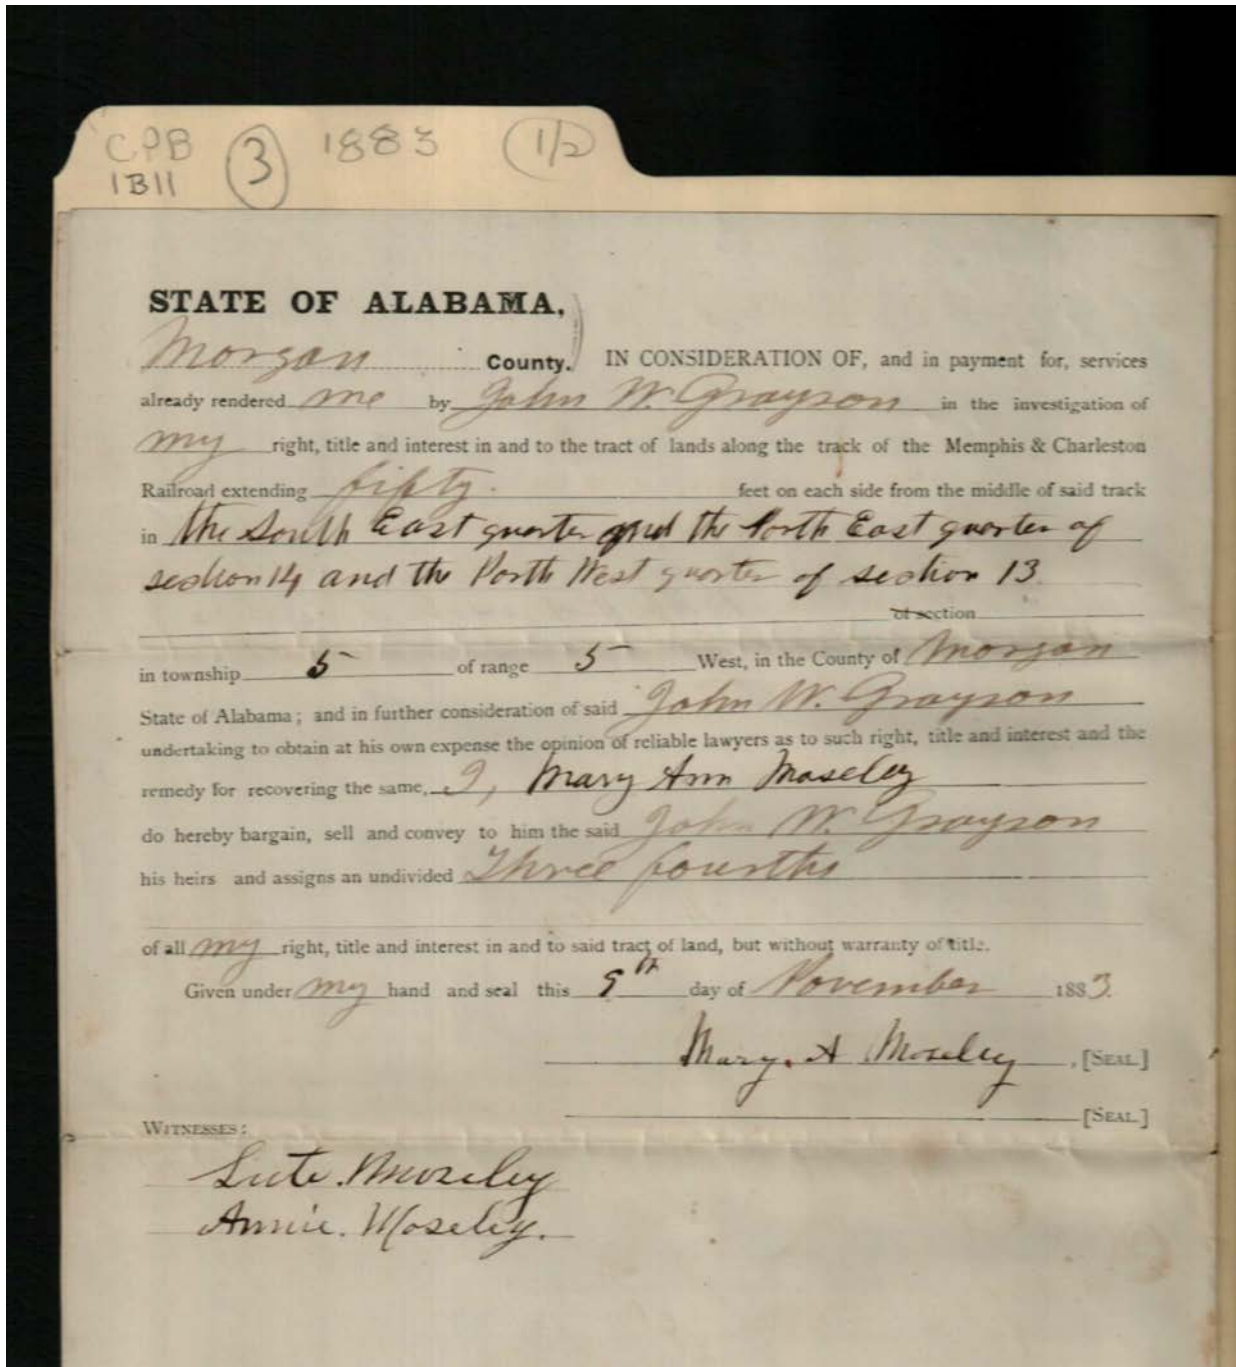 CPB 3 1883 (1/2)
1B11
STATE OF ALABAMA,
Morgan County. IN CONSIDERATION OF, and in payment for, services
already rendered me by John W. Grayson in the investigation of
my right, title and interest in and to the tract of lands along the track of the Memphis & Charleston
Railroad extending fifty. feet on each side from the middle of said track
in the South East quarter and the North East quarter of
section 14 and the North West quarter of section 13.
of section
in township 5 of range 5 West, in the County of Morgan
State of Alabama; and in further consideration of said John W. Grayson
undertaking to obtain at his own expense the opinion of reliable lawyers as to such right, title and interest and the
remedy for recovering the same, I, Mary Ann Moseley
do hereby bargain, sell and convey to him the said John W. Grayson
his heirs and assigns an undivided Three fourths
of all my right, title and interest in and to said tract of land, but without warranty of title.
Given under my hand and seal this 9th day of November 1883.
Mary. A Moseley, [SEAL]
[SEAL]
WITNESSES:
Moseley
Annie. Moseley.